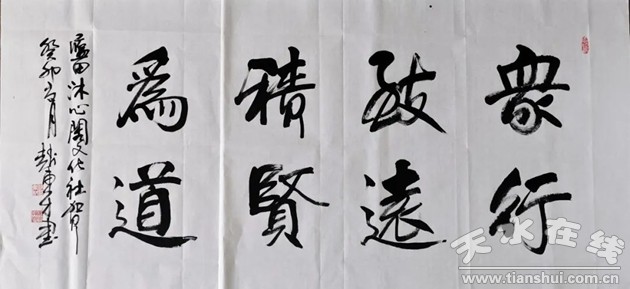 衆行
致遠
積賢
爲道
藍田沐心閣文化社
癸卯月書
天水在线
www.tianshui.com.cn